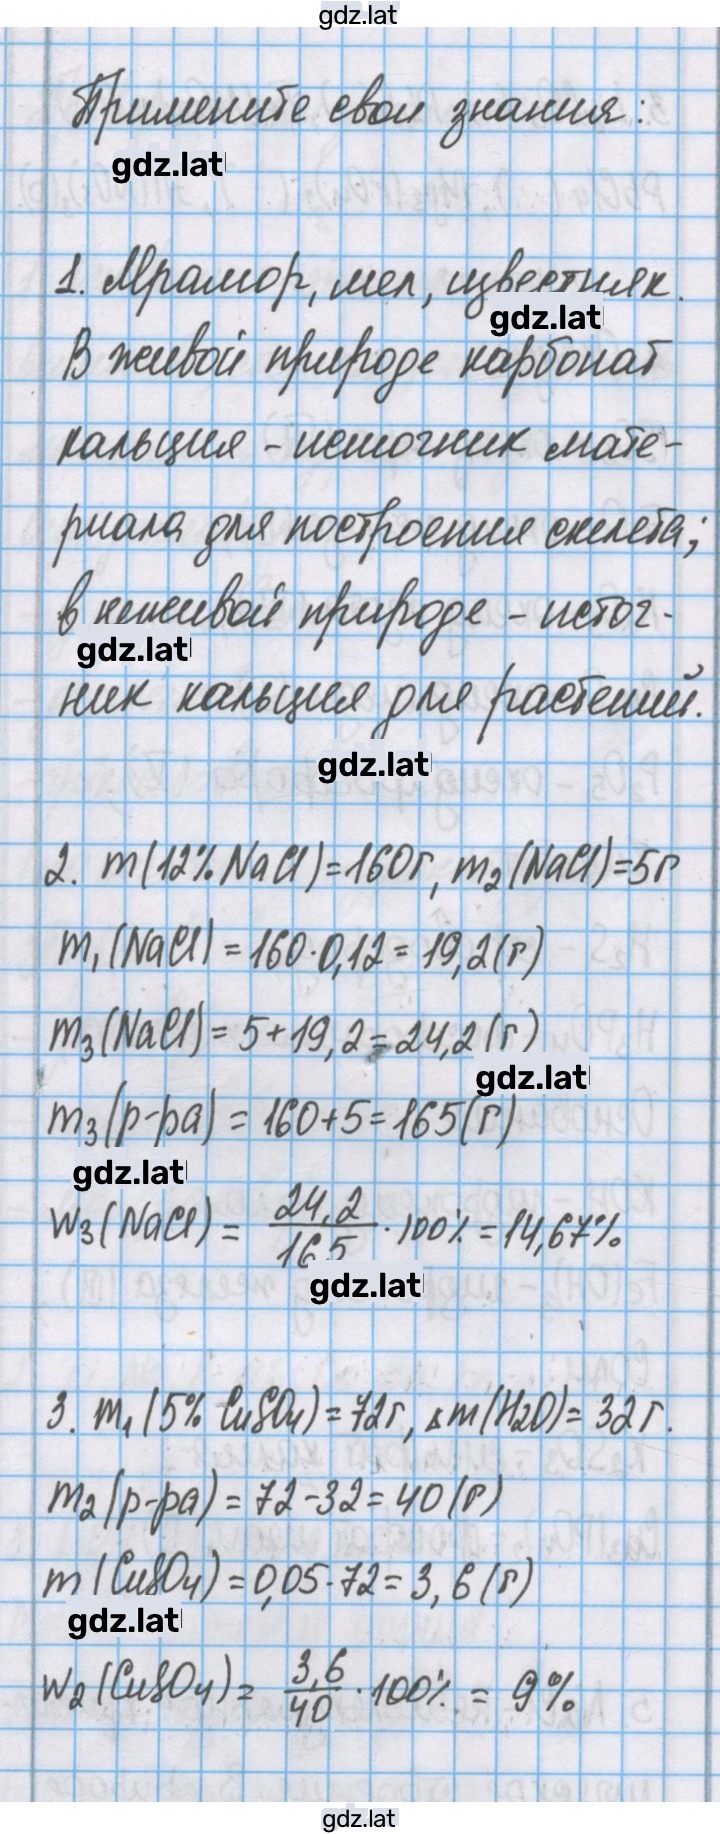 gdz.lat
Примените свои знания:
gdz.lat
1. Мрамор, мел, известняк.
gdz.lat
В живой природе карбонат
кальция - источник мате-
риала для построения скелета;
в неживой природе - источ-
gdz.lat
ник кальция для растений.
gdz.lat
2. m(12% NaCl)=160г, m₂(NaCl)=5г
m₁(NaCl) = 160·0,12 = 19,2(г)
m₃(NaCl) = 5+19,2 = 24,2(г)
gdz.lat
m₃(р-ра) = 160+5 = 165(г)
gdz.lat
w₃(NaCl) = 24,2/165 · 100% = 14,67%
gdz.lat
3. m₁(5% CuSO₄) = 72г, Δm(H₂O) = 32г.
m₂(р-ра) = 72-32 = 40(г)
m(CuSO₄) = 0,05·72 = 3,6(г)
gdz.lat
w₂(CuSO₄) = 3,6/40 · 100% = 9%
gdz.lat